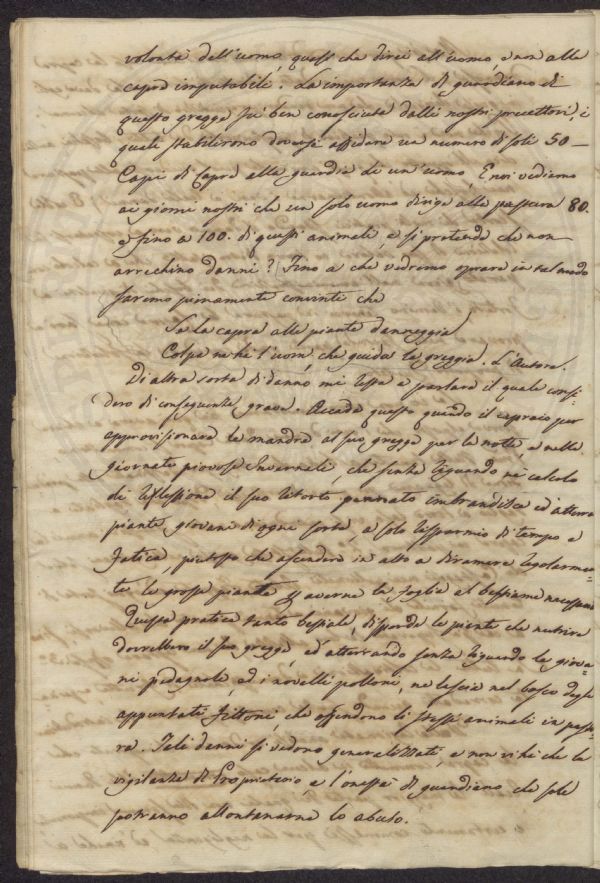 volontà dell'uomo, quasi che direi all'uomo, e non alle
capre imputabili. La importanza di guardiano di
questo gregge fu ben conosciuta dalli nostri precettori, i
quali stabilirono doversi affidare un numero di soli 50 –
Capi di Capre alla guardia di un'uomo, E noi vediamo
ai giorni nostri che un solo uomo dirige alla pastura 80.
e fino a 100. di questi animali, e si pretende che non
arrechino danni? Fino a che vedremo oprare in tal modo
saremo pienamente convinti che
Se la capra alle piante danneggia
Colpa ne hè l'uom, che guida la greggia. L'Autore.
Di altra sorta di danno mi resta a parlare il quale consi-
dero di conseguenza grave. Accade questo quando il capraio per
approvisionare la mandra al suo gregge per la notte, e nelle
giornate piovose Invernali, che senza riguardo nè calcolo
di riflessione il suo ritorto pennato imbrandisce ed atterra
piante giovani di ogni sorta, a solo risparmio di tempo e
fatica piutosto che ascendere in alto a diramare regolarmen-
te le grosse piante per averne la foglia al bestiame necessaria
Questa pratica tanto bestiale, disperde le piante che nutrire
dovrebbero il suo gregge, ed atterrando senza riguardo le giova-
ni pedagnole, ed i novelli polloni, ne lascia nel bosco degli
appuntati fittoni, che offendono li stessi animali in pastu-
ra. Tali danni si vedono generalizzati, e non vi hè che la
vigilanza di Proprietario, e l'onestà di guardiano che sole
potranno allontanarne lo abuso.